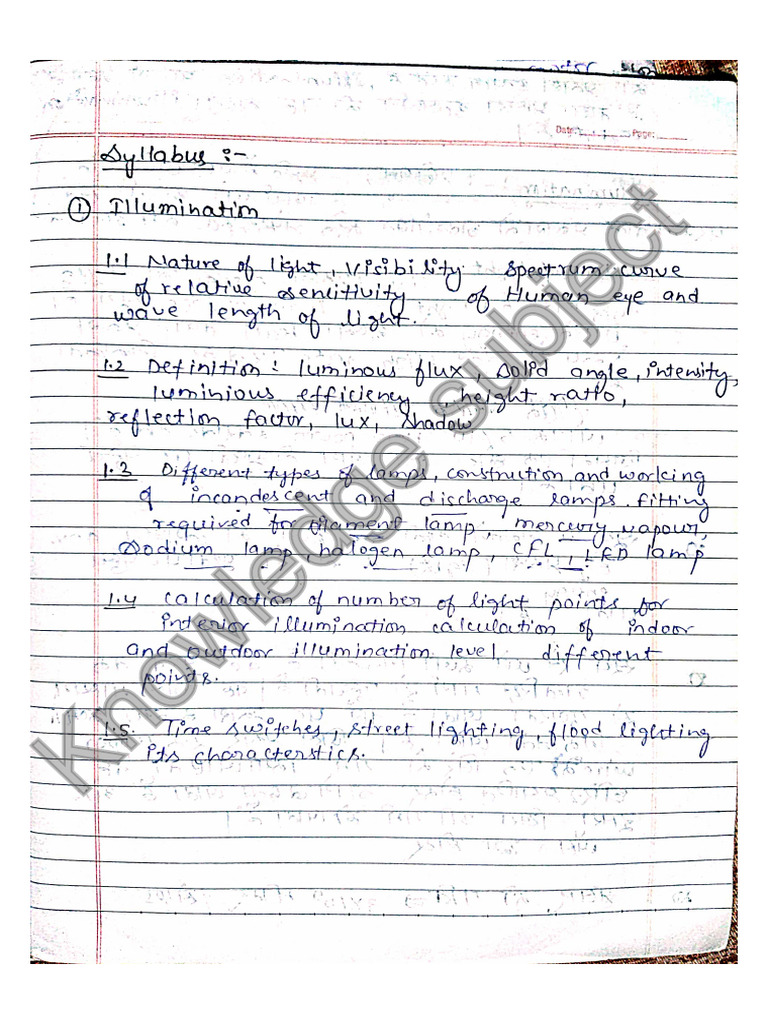 Date: Page:
Syllabus :-
① Illumination
1.1 Nature of light, visibility spectrum curve
of relative sensitivity of Human eye and
wave length of light.
1.2 Definition: luminous flux, solid angle, intensity,
luminious efficiency, height ratio,
reflection factor, lux, shadow
1.3 Different types of lamps, construction and working
of incandescent and discharge lamps. fitting
required for filament lamp, mercury vapour,
Sodium lamp, halogen lamp, CFL, LED lamp
1.4 Calculation of number of light points for
interior illumination calculation of indoor
and outdoor illumination level. different
points.
1.5. Time switches, street lighting, flood lighting
its characterstics.
Knowledge subject